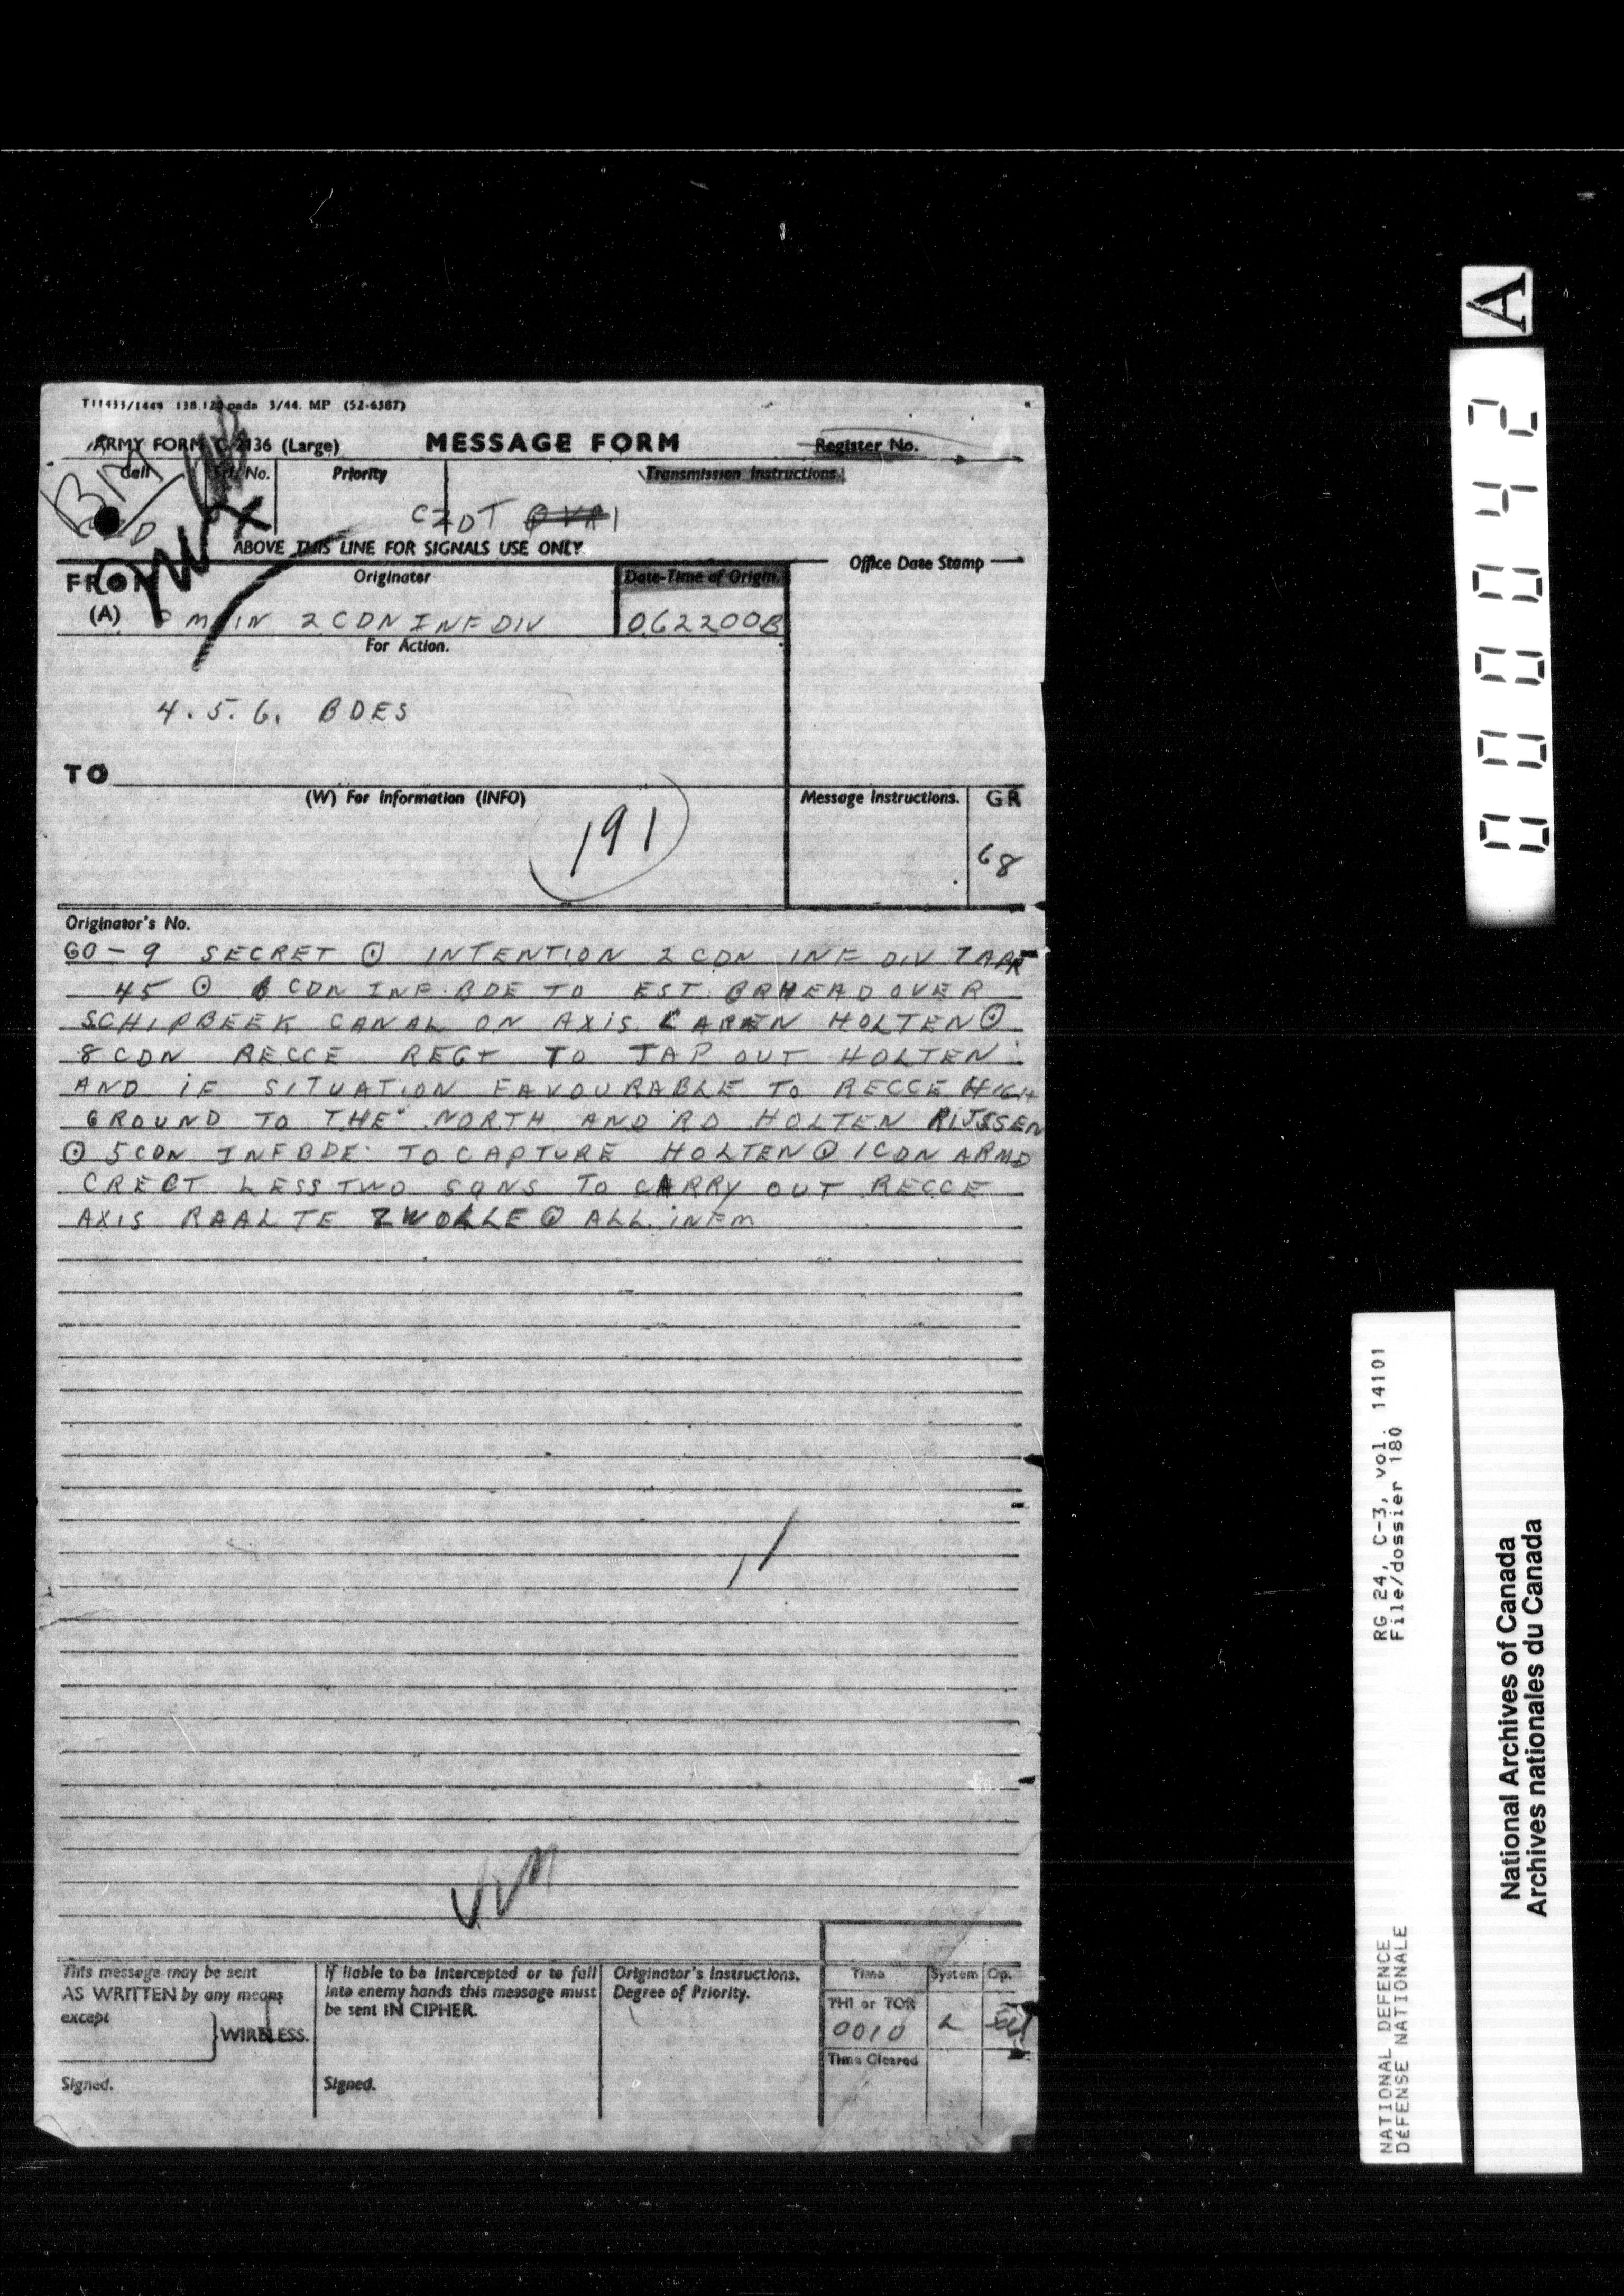 T11433/1449 138,120 pads 3/44. MP (52-6387)
ARMY FORM C/2136 (Large) MESSAGE FORM Register No.
Call Srl. No. Priority Transmission Instructions
BM
CZDT
ABOVE THIS LINE FOR SIGNALS USE ONLY.
Office Date Stamp
FROM Originator Date-Time of Origin.
(A) MAIN 2 CDN INF DIV 062200B
For Action.
4.5.6. BDES
TO
(W) For Information (INFO) Message Instructions. GR
191
68
Originator's No.
GO-9 SECRET ⊙ INTENTION 2 CDN INF DIV 7 APR
45 ⊙ 6 CDN INF BDE TO EST BRHEAD OVER
SCHIPBEEK CANAL ON AXIS LAREN HOLTEN ⊙
8 CDN RECCE REGT TO TAP OUT HOLTEN
AND IF SITUATION FAVOURABLE TO RECCE HIGH
GROUND TO THE NORTH AND RD HOLTEN RIJSSEN
⊙ 5 CDN INF BDE TO CAPTURE HOLTEN ⊙ 1 CDN ARMD
C REGT LESS TWO SQNS TO CARRY OUT RECCE
AXIS RAALTE ZWOLLE ⊙ ALL INFM
This message may be sent
AS WRITTEN by any means
except
WIRELESS.
Signed.
If liable to be intercepted or to fall
into enemy hands this message must
be sent IN CIPHER.
Signed.
Originator's Instructions.
Degree of Priority.
Time System Op.
THI or TOR
0010
Time Cleared
A
000042
RG 24, C-3, vol. 14101
File/dossier 180
NATIONAL DEFENCE
DÉFENSE NATIONALE
National Archives of Canada
Archives nationales du Canada